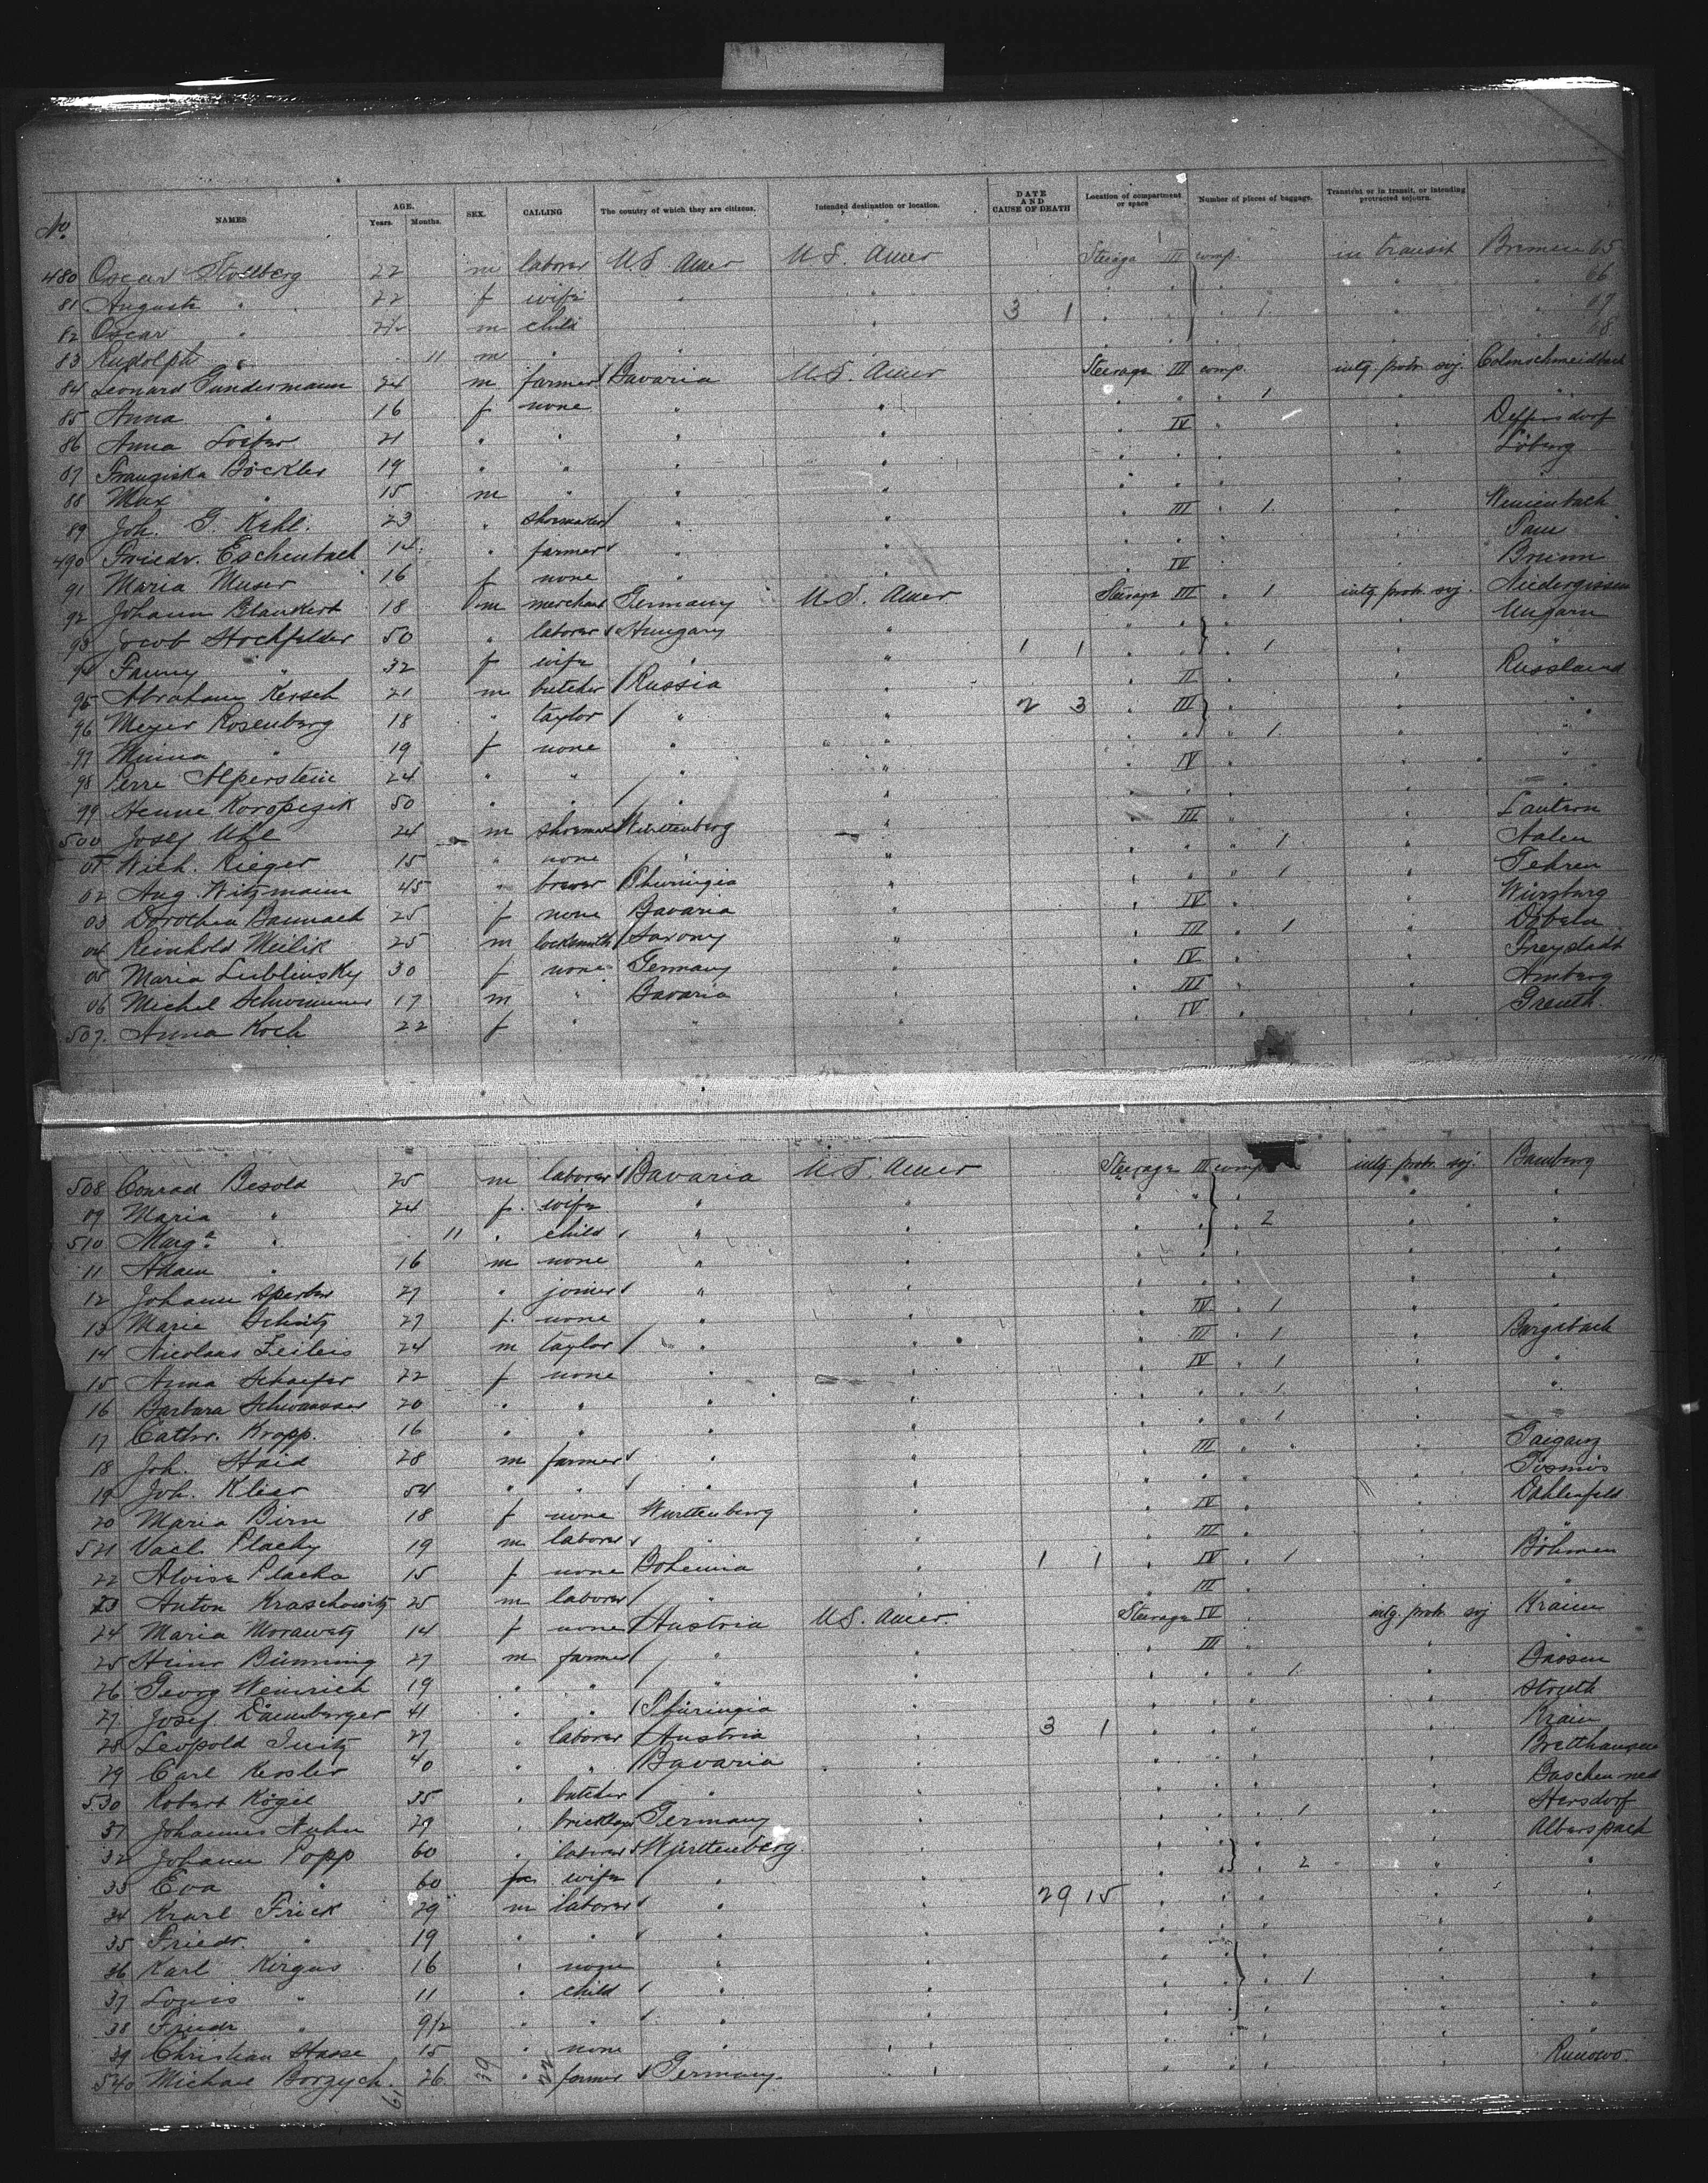 No. NAMES AGE. Years. Months. SEX. CALLING The country of which they are citizens. Intended destination or location. DATE AND CAUSE OF DEATH Location of compartment or space Number of pieces of baggage. Transient or in transit, or intending protracted sojourn.
480 Oscar Stollberg 22 m laborer U.S. Amer U.S. Amer Steerage III comp. in transit Bremen 65
81 Auguste " 22 f wife " " " " " " 66
82 Oscar " 2½ m child " " 3 1 " " 1 " " 67
83 Rudolph " 11 m " " " " " " " 68
84 Leonard Gundermann 24 m farmer Bavaria U.S. Amer Steerage III comp. intg. protr. soj.
85 Anna " 16 f none " " " " " 1 "
86 Anna 21 " " " " " IV " 1 "
87 Franziska Böckler 19 " " " " " " " "
88 Max " 15 m " " " " " " "
89 Joh. G. Kahl. 23 " shoemaker " " " III " 1 "
490 Friedr. Eschenbach 14 " farmer " " " " " "
91 Maria Muser 16 f none " " " IV " " Brünn
92 Johann Blankert 18 m merchant Germany U.S. Amer Steerage III " 1 intg. protr. soj.
93 Jacob Hochfelder 50 " laborer Hungary " " " " " Ungarn
94 Fanny " 32 f wife " " 1 1 " " " 1 "
95 Abraham Kersch 21 m butcher Russia " " II " " Russland
96 Meyer Rosenberg 18 " taylor " " 2 3 " III " " "
97 Minna " 19 f none " " " " " 1 " "
98 Perre Alperstein 24 " " " " " IV " " "
99 Henne Koropczik 50 " " " " " " " " "
500 Josef Uhl 24 m shoemaker Württemberg " " III " " Lautern
01 Wilh. Rieger 15 " none " " " " " 1 " Aalen
02 Aug. Witzmann 45 " brewer Thuringia " " " " 1 " Tehren
03 Dorothea Baunach 25 f none Bavaria " " IV " " Würzburg
04 Reinhold Meilik 25 m locksmith Saxony " " III " 1 " Döbeln
05 Maria Lublinsky 30 f none Germany " " IV " " Freystadt
06 Michel Schwemmer 17 m " Bavaria " " III " " Amberg
507. Anna Koch 22 f " " " " IV " " Greuth
508 Conrad Besold 25 m laborer Bavaria U.S. Amer Steerage III comp intg. protr. soj. Bamberg
09 Maria " 24 f. wife " " " " " " "
510 Marg. " 11 " child " " " " " 2 " "
11 Adam " 16 m none " " " " " " "
12 Johann Sperber 27 " joiner " " " " " " "
13 Marie Schütz 27 f. none " " " IV " 1 " "
14 Nicolaus Zeileis 24 m taylor " " " III " 1 "
15 Anna Schaefer 22 f none " " " IV " 1 " "
16 Barbara 20 " " " " " " " 1 " "
17 Cathr. Kropp. 16 " " " " " " " 1 "
18 Joh. Haid 28 m farmer " " " III " " "
19 Joh. Klier 54 " " " " " " " "
20 Maria Birn 18 f none Württemberg " " IV " " Dahlenfeld
521 Vacl. Plachy 19 m laborer " " " III " " "
22 Aloisa Placha 15 f none Bohemia " 1 1 " IV " 1 " Böhmen
23 Anton Kraschowitz 25 m laborer " " " III " " "
24 Maria Morawetz 14 f none Austria U.S. Amer. Steerage IV " intg. protr. soj Krain
25 Heinr Bünning 27 m farmer " " " III " "
26 Georg Weinrich 19 " " " " " " " 1 " Bassen
27 Josef Daumburger 41 " " Thüringia " " " " " Struth
28 Leopold 27 " laborer Austria " 3 1 " " " " Krain
29 Carl Kessler 40 " " Bavaria " " " " "
530 Robert Kögel 35 " butcher " " " " " "
31 Johannes Kuhn 29 " bricklayer Germany " " " " 1 " Hersdorf
32 Johann Popp 60 " laborer Württemberg " " " " "
33 Eva " 60 fm wife " " " " " 2 " "
34 Karl Frick 29 m laborer " " 29 15 " " " " "
35 Friedr. " 19 " " " " " " " " "
36 Karl Kirgus 16 " none " " " " " " "
37 Louis " 11 " child " " " " " 1 " "
38 Friedr " 9½ " " " " " " " " "
39 Christian Haase 15 " none " " " " " " "
540 Michael Borzych. 26. " farmer Germany. " " " " " Runowo.
61 39 22